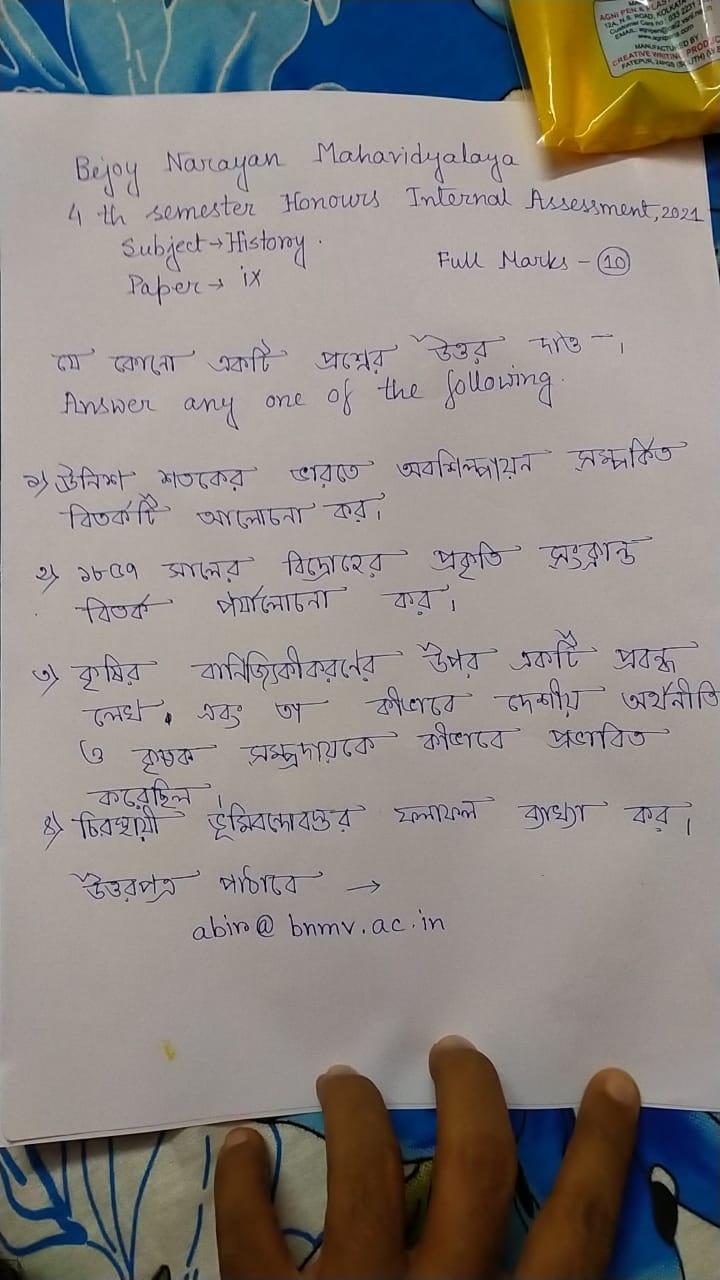 AGNI PEN & PLAS
12A, N.S. ROAD, KOLKATA
Customer Care no : 033 2231
EMAIL:
MANUFACTURED BY
CREATIVE WRITING PROD
FATEPUR,
Bejoy Narayan Mahavidyalaya
4 th semester Honours Internal Assessment, 2021
Subject → History.
Full Marks - 10
Paper → ix
যে কোনো একটি প্রশ্নের উত্তর দাও –।
Answer any one of the following.
১) ঊনিশ শতকের ভারতে অবশিল্পায়ন সম্পর্কিত
বিতর্কটি আলোচনা কর।
২) ১৮৫৭ সালের বিদ্রোহের প্রকৃতি সংক্রান্ত
বিতর্ক পর্যালোচনা কর।
৩) কৃষির বানিজ্যিকীকরণের উপর একটি প্রবন্ধ
লেখ, এবং তা কীভাবে দেশীয় অর্থনীতি
ও কৃষক সম্প্রদায়কে কীভাবে প্রভাবিত
করেছিল।
৪) চিরস্থায়ী ভূমিবন্দোবস্তর ফলাফল ব্যাখ্যা কর।
উত্তরপত্র পাঠাবে →
abin@bnmv.ac.in